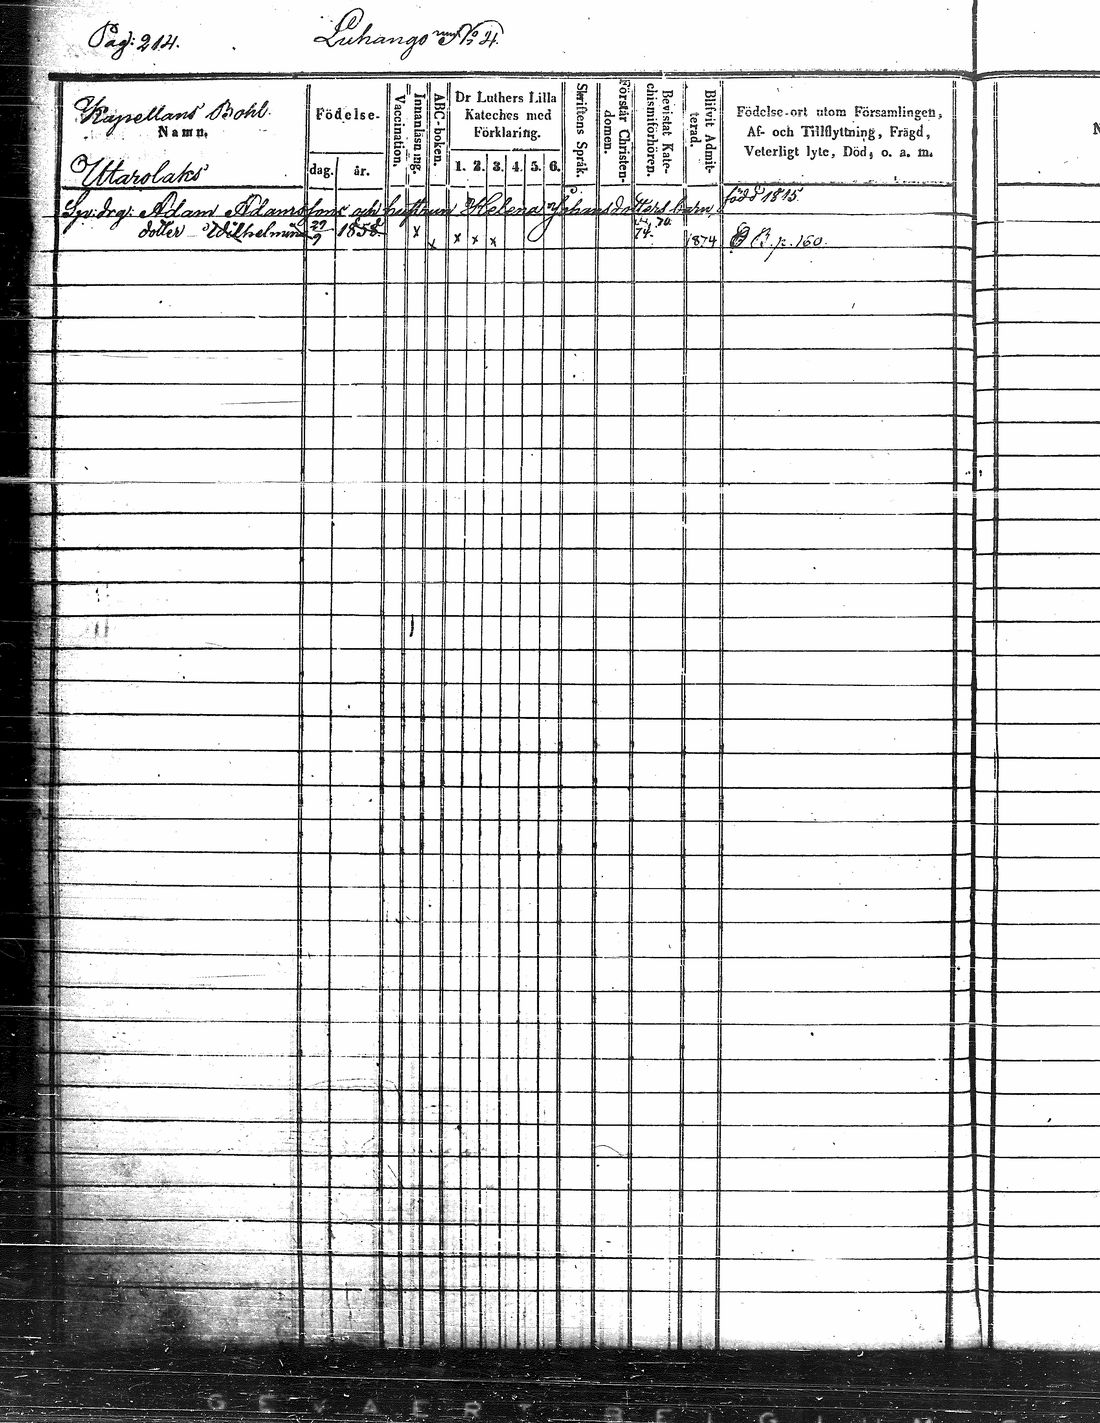 Pag: 214.
Luhango No 4.
Kapellans Bohl.
Namn.
Uttarolaks
Födelse-
dag.
år.
Vaccination.
Innanläsning.
ABC-boken.
Dr Luthers Lilla
Kateches med
Förklaring.
1. 2. 3. 4. 5. 6.
Skriftens Språk.
Förstår Christen-
domen.
Bevistat Kate-
chismiförhören.
Blifvit Admit-
terad.
Födelse-ort utom Församlingen,
Af- och Tillflyttning, Frägd,
Veterligt lyte, Död, o. a. m.
N
Adam Adamssons och hustrun Helena Johansdotters barn född 1815.
dotter Wilhelmina 29/9 1858. x x x x x 74. 70. 1874 B. p. 160.
GEVAERT BELGIUM